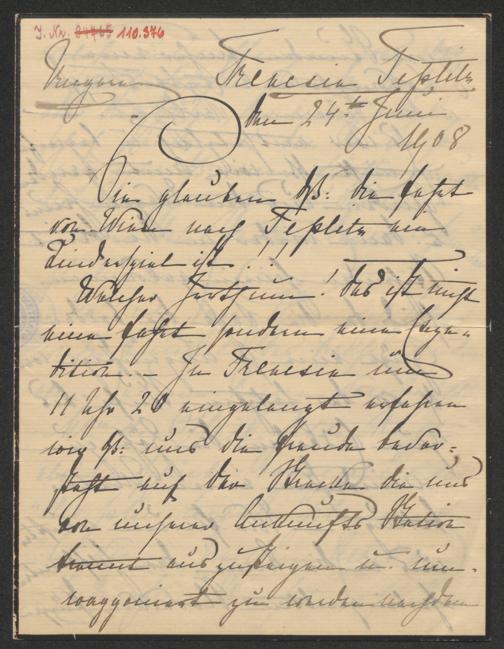 I. Nr. 110.376
Ungarn
Trencsin Teplitz
den 24ten Juni
1908
Sie glauben dß: die Fahrt
von Wien nach Teplitz ein
Kinderspiel ist!!
Welcher Irrthum! das ist nicht
eine Fahrt sondern eine Expe-
dition. – In Trencsin um
11 Uhr 20 eingelangt erfahren
wir dß: uns die Freude bevor-
steht auf der Strecke die uns
von unserer Ankunfts Station
trennt auszusteigen u. um-
waggonirt zu werden nachdem